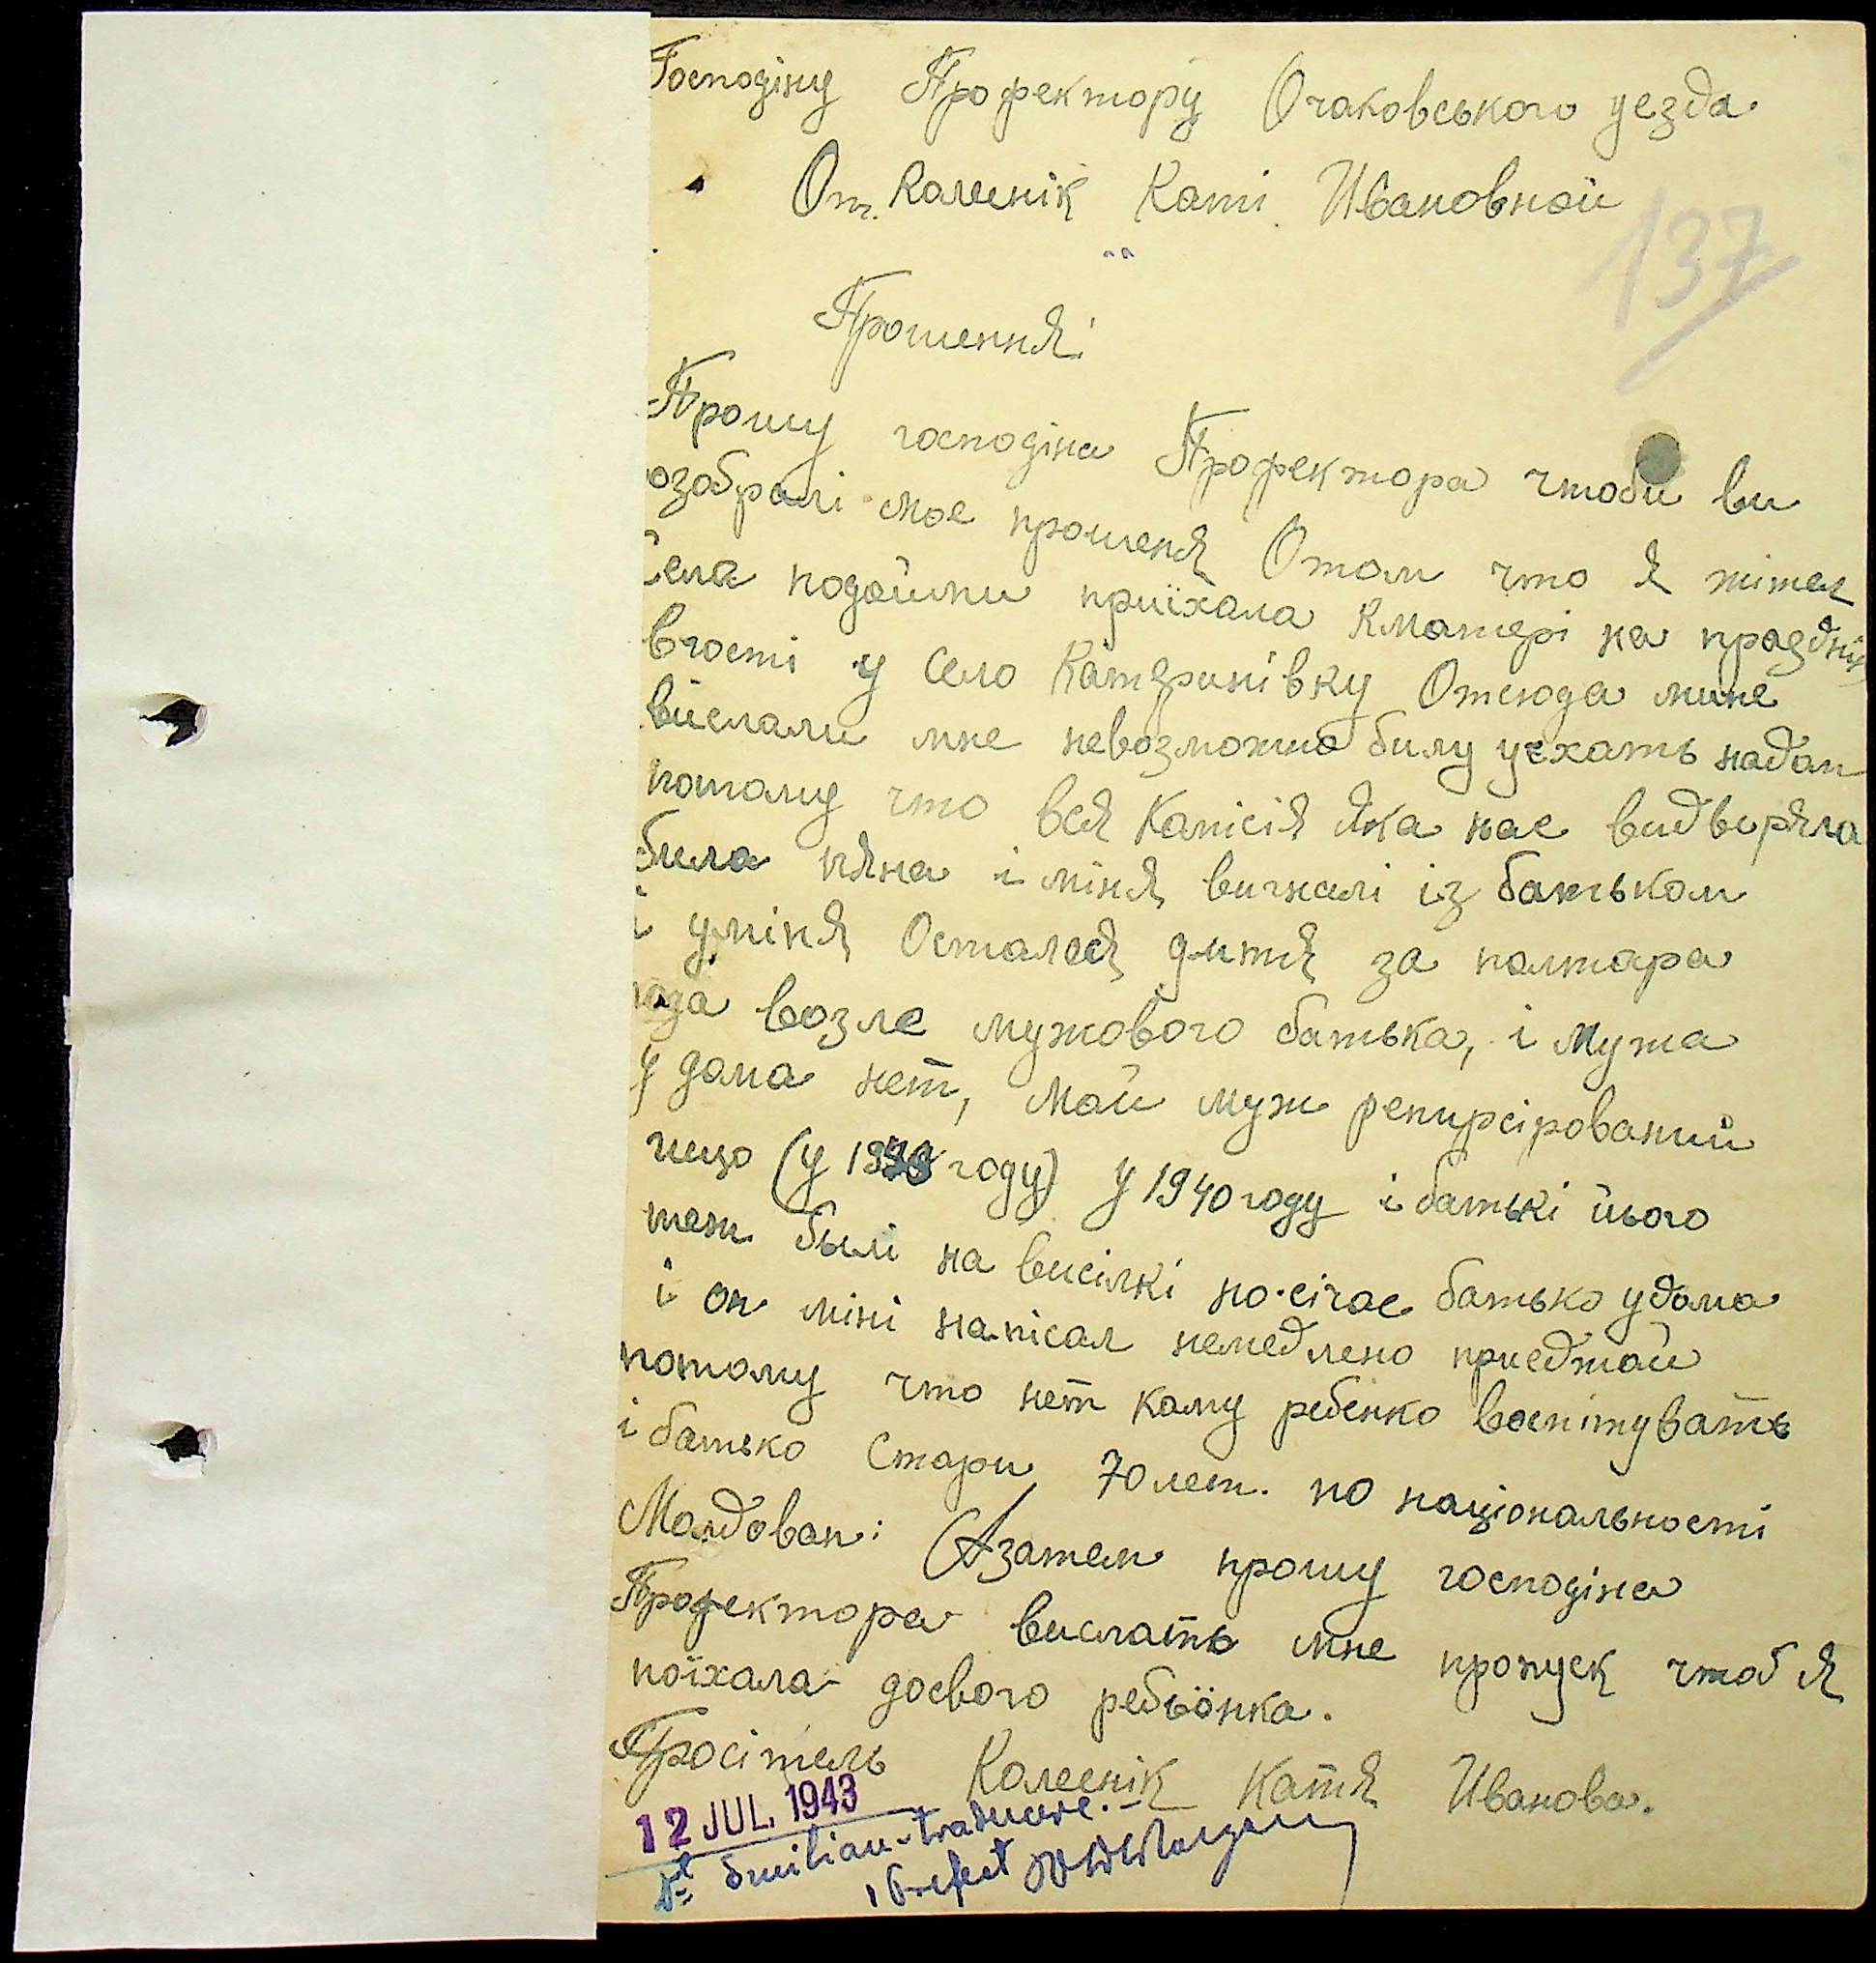 Господіну Профектору Очаковського уезда
От. Калиснік Каті Ивановной
137
Прошення:
Прошу господіна Профектора чтоби ви
розобралі мое прошеня Отом что я жітель
села приїхала кматері на праздник
вгості у село Катеринівку Отсюда мине
вислали мне невозможно билу уехать надом
потому что вся Камісія яка нас видворяла
била пяна і міня вигналі із батьком
і уміня Осталося дитя за полтара
года возле мужового батька, і мужа
у дома нет, мой муж репирсірований
ищо (у 19 году) у 1940 году і батькі його
теж былі на висілкі но січас батько удома
і он міні напісал немедлено приеджай
потому что нет кому ребенко воспітувать
і батько Стари 70 лет. по національності
Молдован: Азатем прошу господіна
Профектора вислать мне пропуск чтоб я
поїхала досвого ребьонка.
Просітель Калеснік Катя Иванова.
12 JUL. 1943
Smilian-traducere.-
Prefect